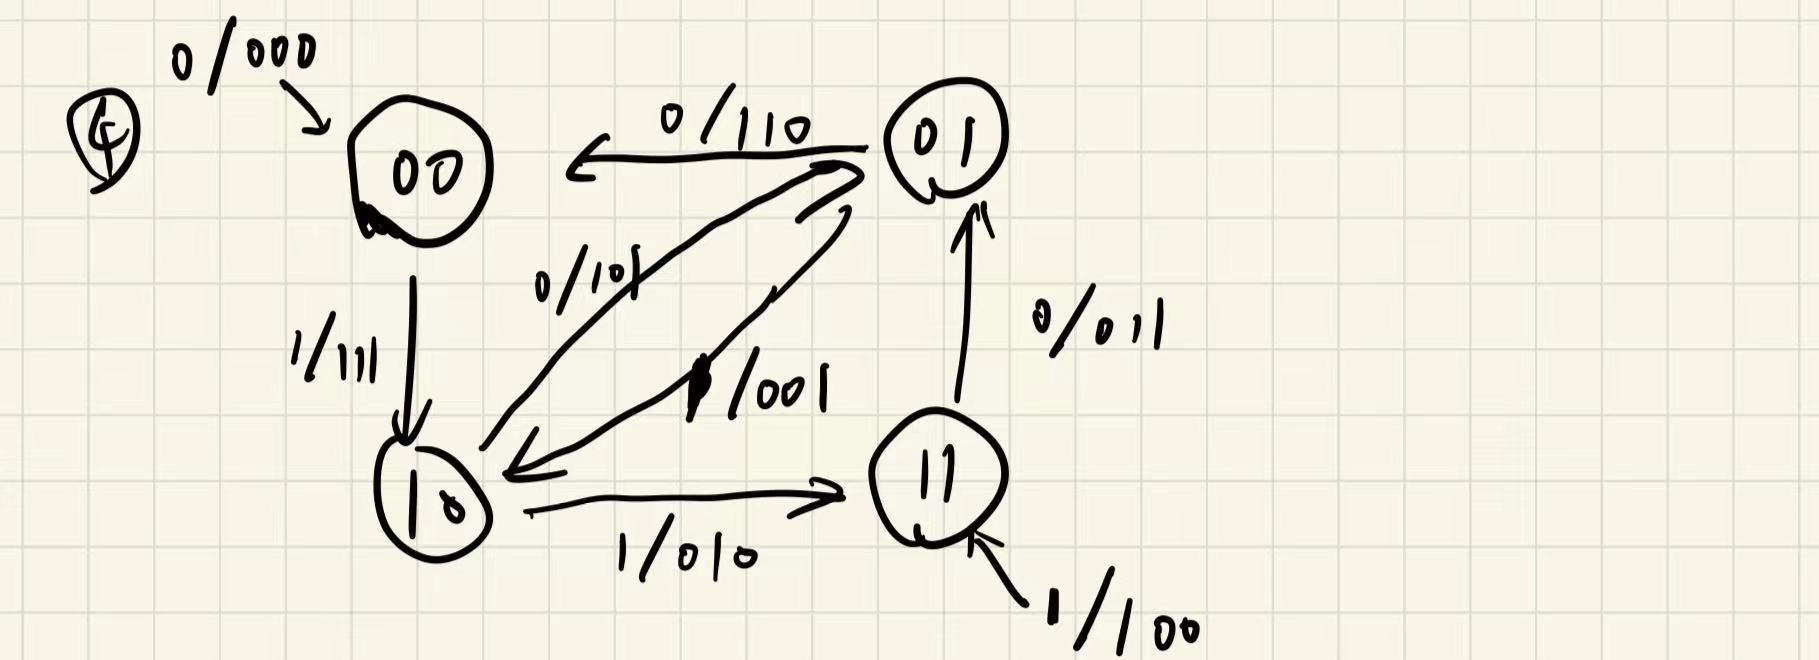 ④ 0/000
00
0/110
01
0/101
1/111
1/001
0/011
10
11
1/010
1/100